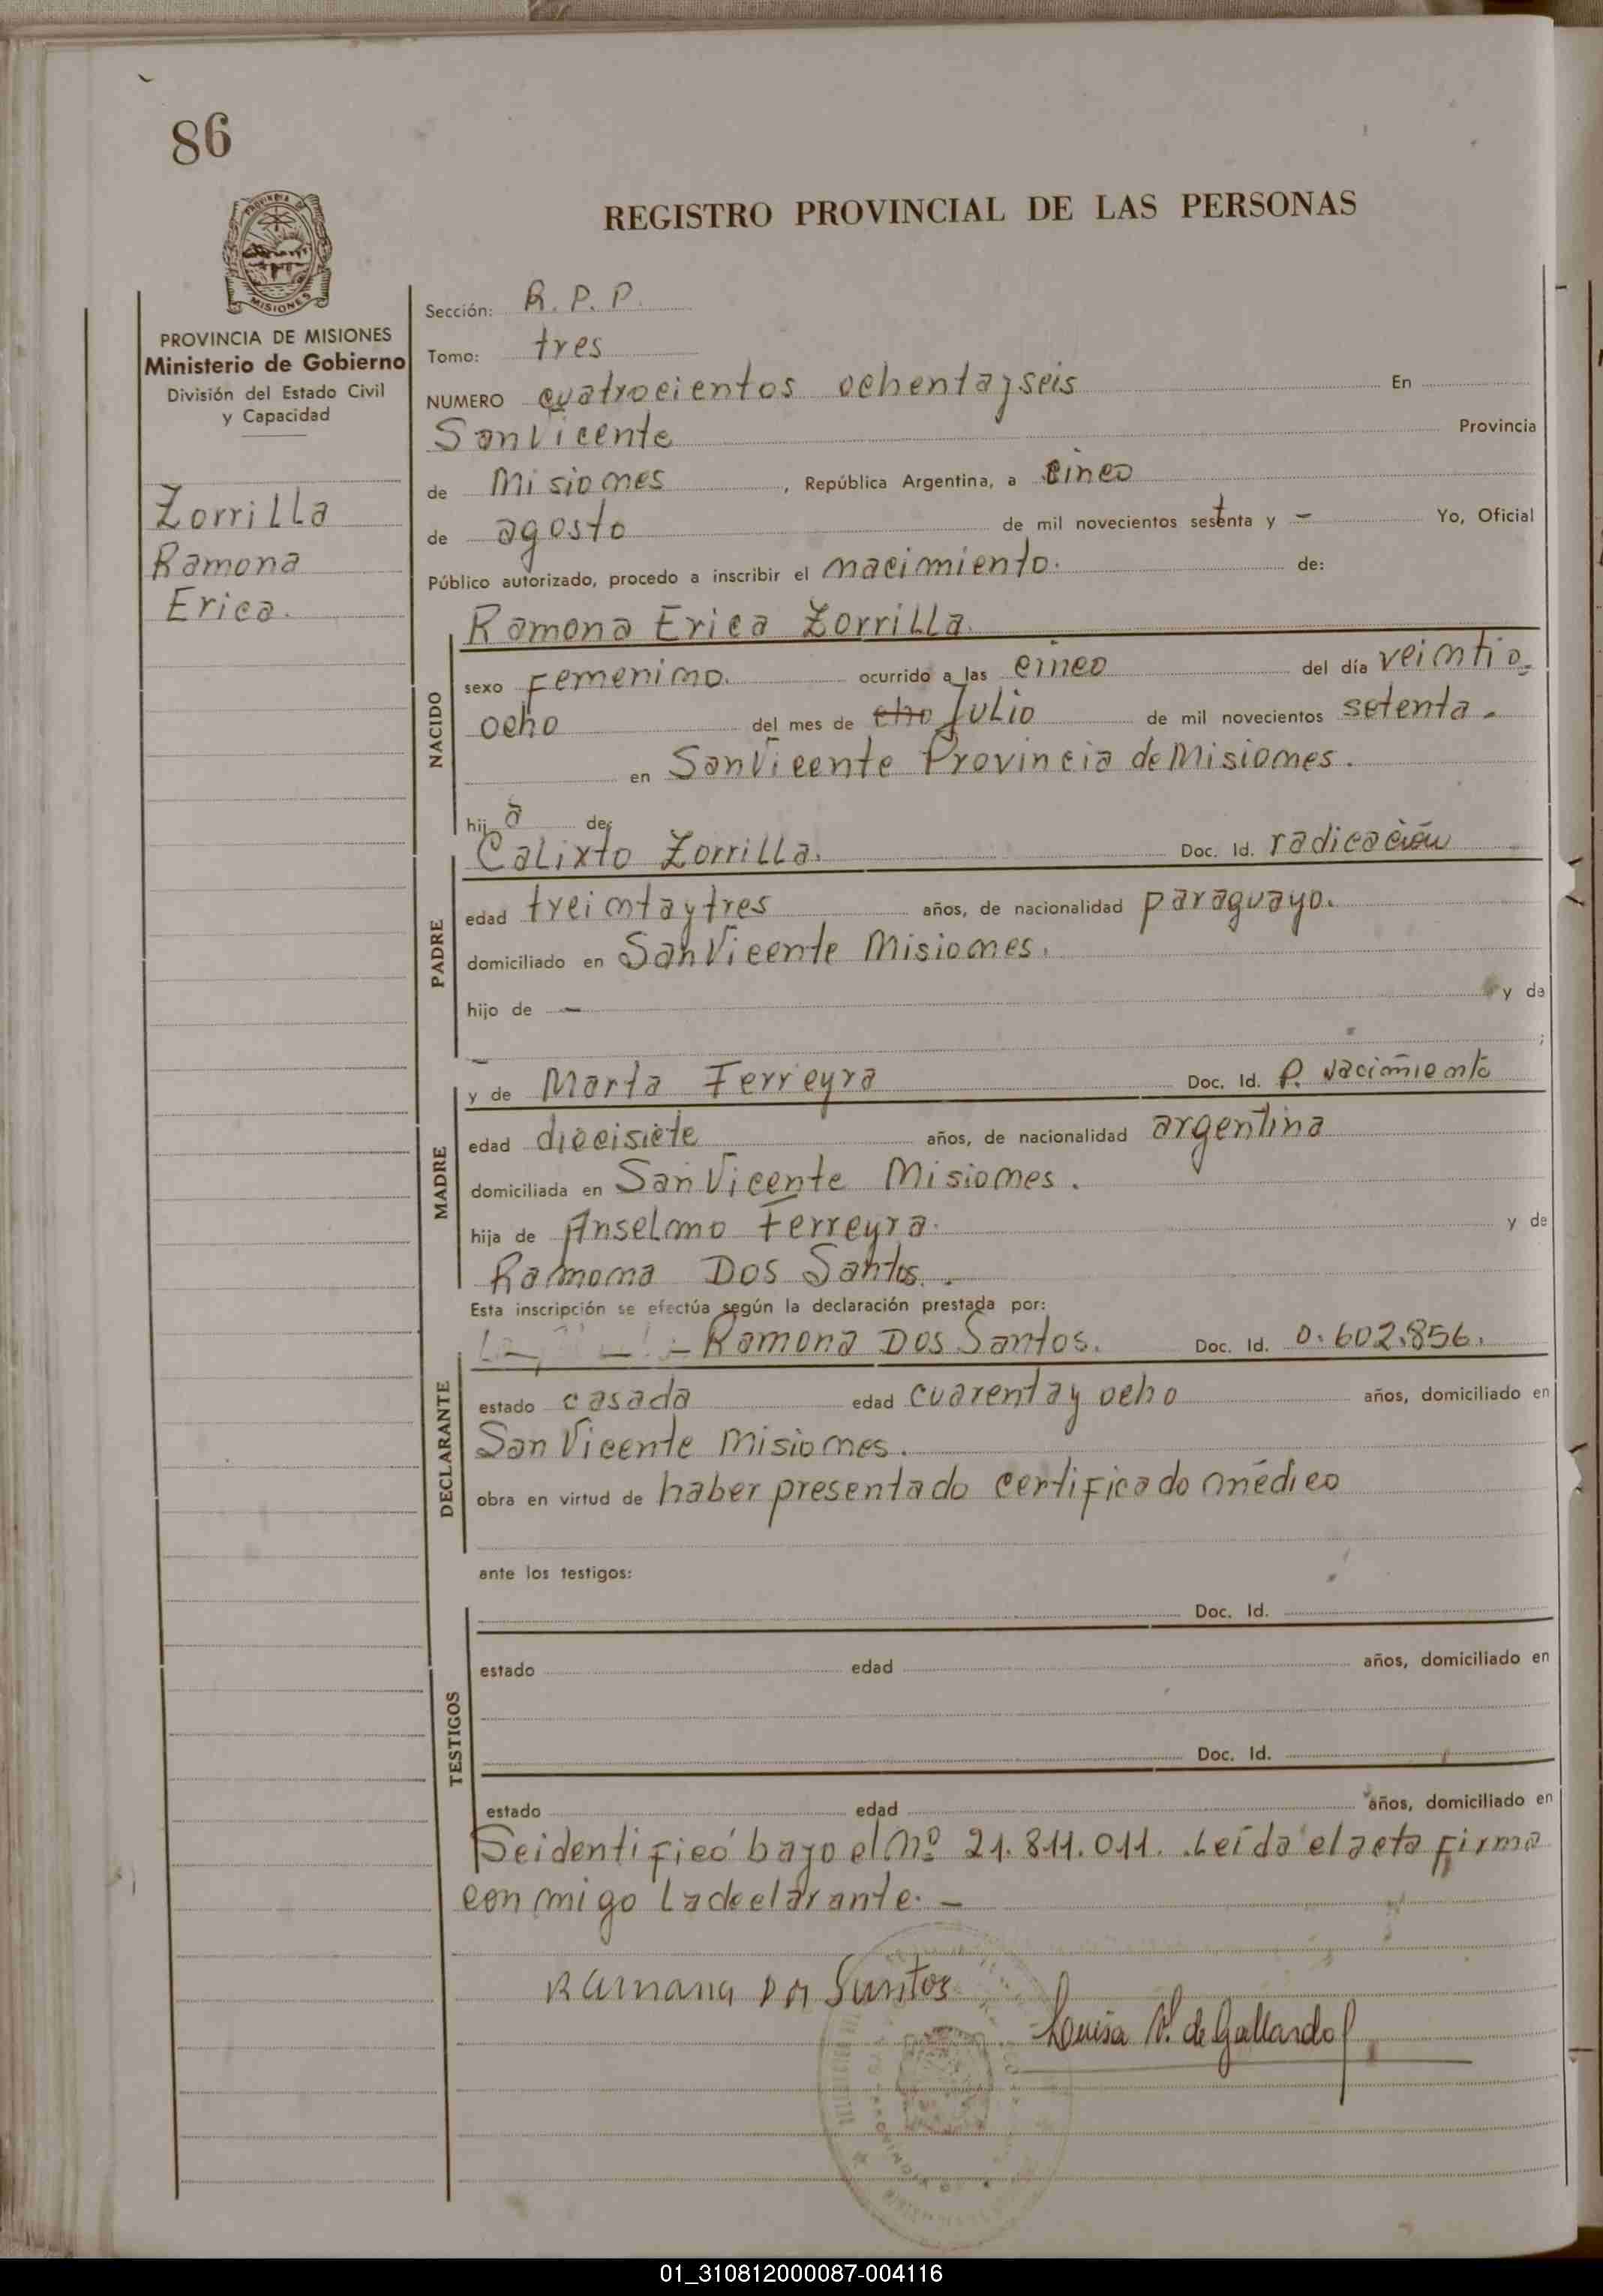 86
REGISTRO PROVINCIAL DE LAS PERSONAS
MISIONES
PROVINCIA DE MISIONES
Ministerio de Gobierno
División del Estado Civil
y Capacidad
Zorrilla
Ramona
Erica.
Sección: R. P. P.
Tomo: tres
NUMERO cuatrocientos ochentayseis En
San Vicente Provincia
de Misiones, República Argentina, a cinco
de agosto de mil novecientos setenta y - Yo, Oficial
Público autorizado, procedo a inscribir el nacimiento. de:
NACIDO
Ramona Erica Zorrilla.
sexo Femenino. ocurrido a las cinco del día veintio-
ocho del mes de cho Julio de mil novecientos setenta.
en San Vicente Provincia de Misiones.
hij a de:
PADRE
Calixto Zorrilla. Doc. Id. radicación
edad treintaytres años, de nacionalidad paraguayo.
domiciliado en San Vicente Misiones.
hijo de - y de
- ;
MADRE
y de Marta Ferreyra Doc. Id. P. Nacimiento
edad diecisiete años, de nacionalidad argentina
domiciliada en San Vicente Misiones.
hija de Anselmo Ferreyra. y de
Ramona Dos Santos.
Esta inscripción se efectúa según la declaración prestada por:
DECLARANTE
- Ramona Dos Santos. Doc. Id. 0.602.856.
estado casada edad cuarentay ocho años, domiciliado en
San Vicente Misiones.
obra en virtud de haber presentado certificado médico
ante los testigos:
TESTIGOS
Doc. Id.
estado edad años, domiciliado en
Doc. Id.
estado edad años, domiciliado en
Seidentificó bajo el Nº 21.811.011. Leída el acta firma
conmigo La declarante. -
Ramana Dos Suntos
Louisa V. de Gallardo
01_310812000087-004116